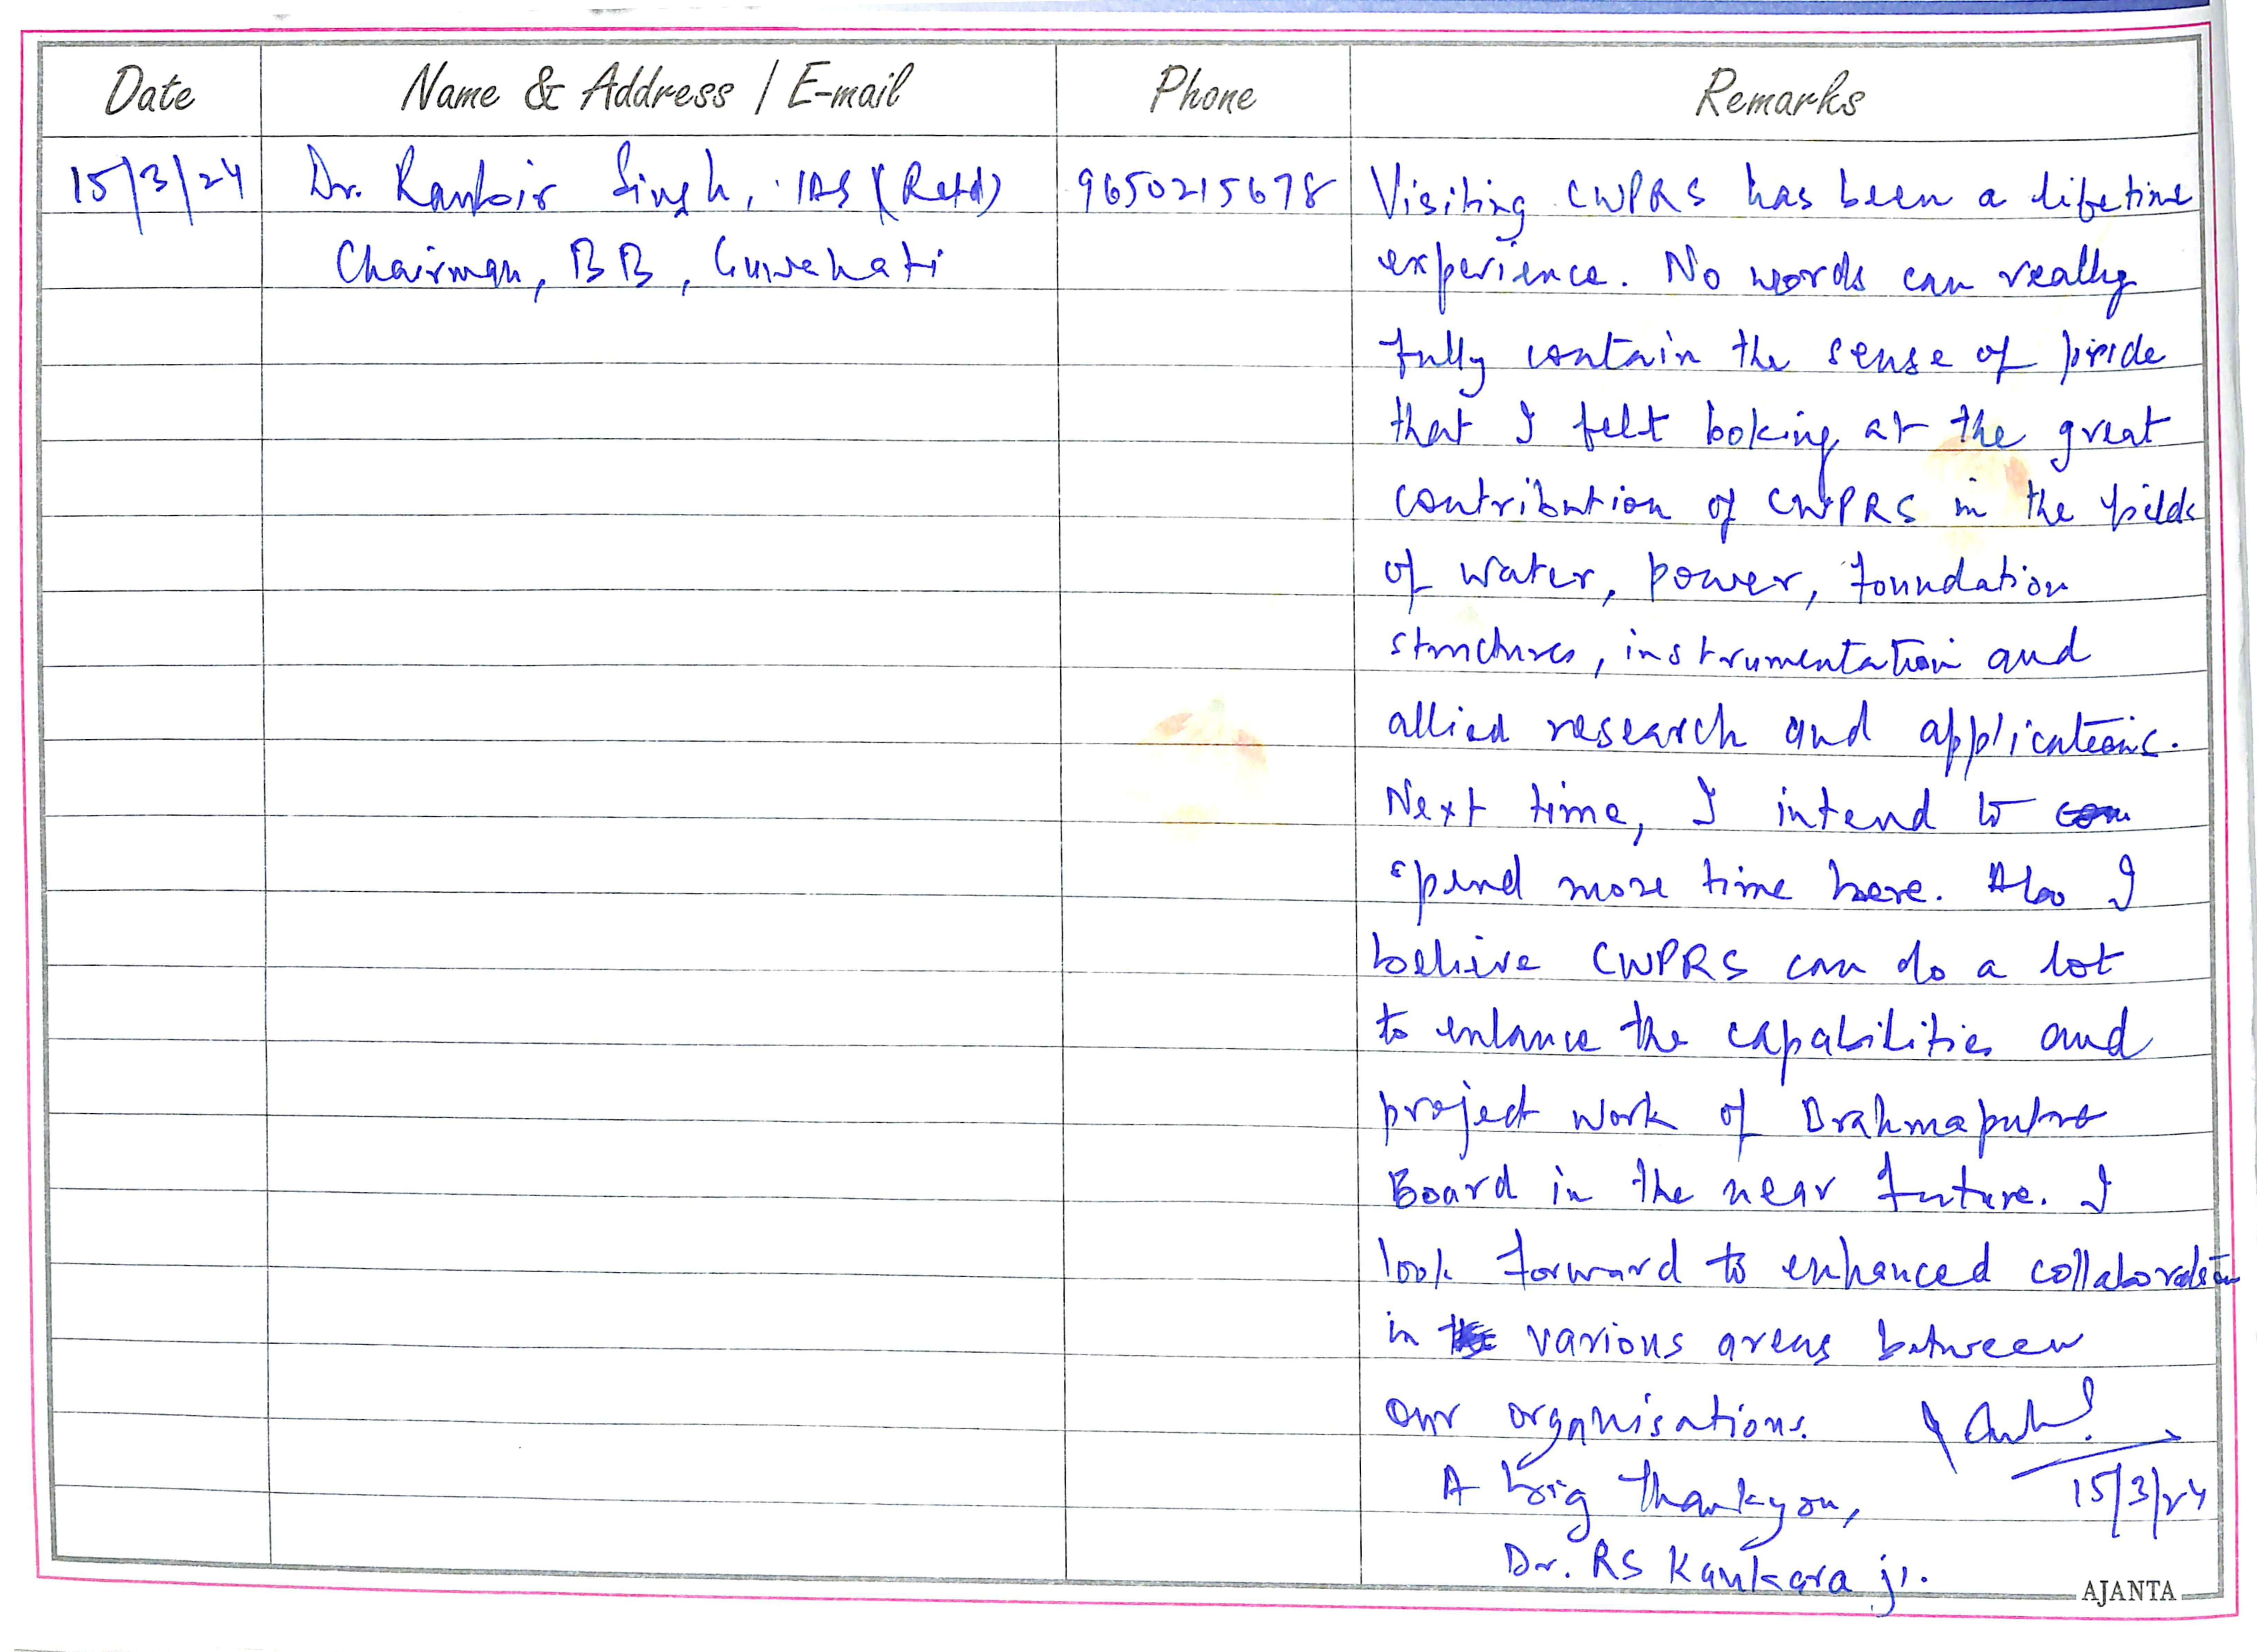 Date Name & Address / E-mail Phone Remarks
15/3/24 Dr. Ranbir Singh, IAS (Retd) 9650215678 Visiting CWPRS has been a lifetime
Chairman, BB, Guwahati experience. No words can really
fully contain the sense of pride
that I felt looking at the great
contribution of CWPRS in the fields
of water, power, foundation
structures, instrumentation and
allied research and applications.
Next time, I intend to
spend more time here. Also I
believe CWPRS can do a lot
to enhance the capabilities and
project work of Brahmaputra
Board in the near future. I
look forward to enhanced collaboration
in various areas between
our organisations.
A big thankyou, 15/3/24
Dr. RS Kankara ji.
AJANTA